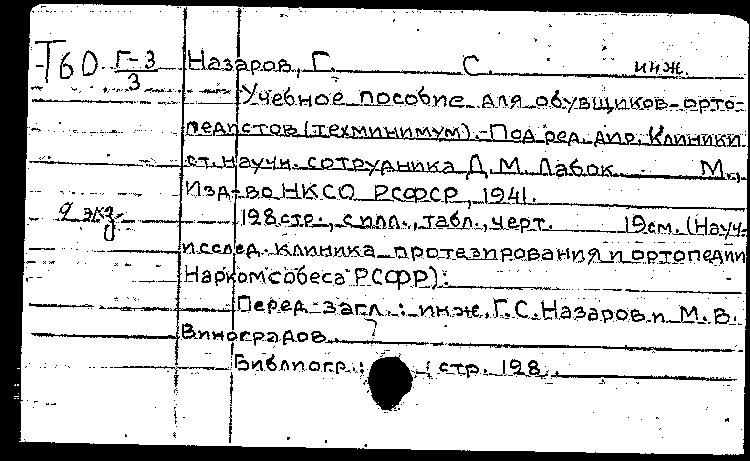 Т60 Г-3/3 Назаров, Г. С. инж.
Учебное пособие для обувщиков-орто-
педистов (техминимум).-Под ред. дир. Клиники
ст. научн. сотрудника Д.М. Лабок М.,
Изд-во НКСО РСФСР, 1941.
2 экз 128 стр., с илл., табл., черт. 19см. (Науч-
исслед. клиника протезирования и ортопедии
Наркомсобеса РСФР):
Перед загл.: инж. Г.С. Назаров и М.В.
Виноградов.
Библиогр.: стр. 128.